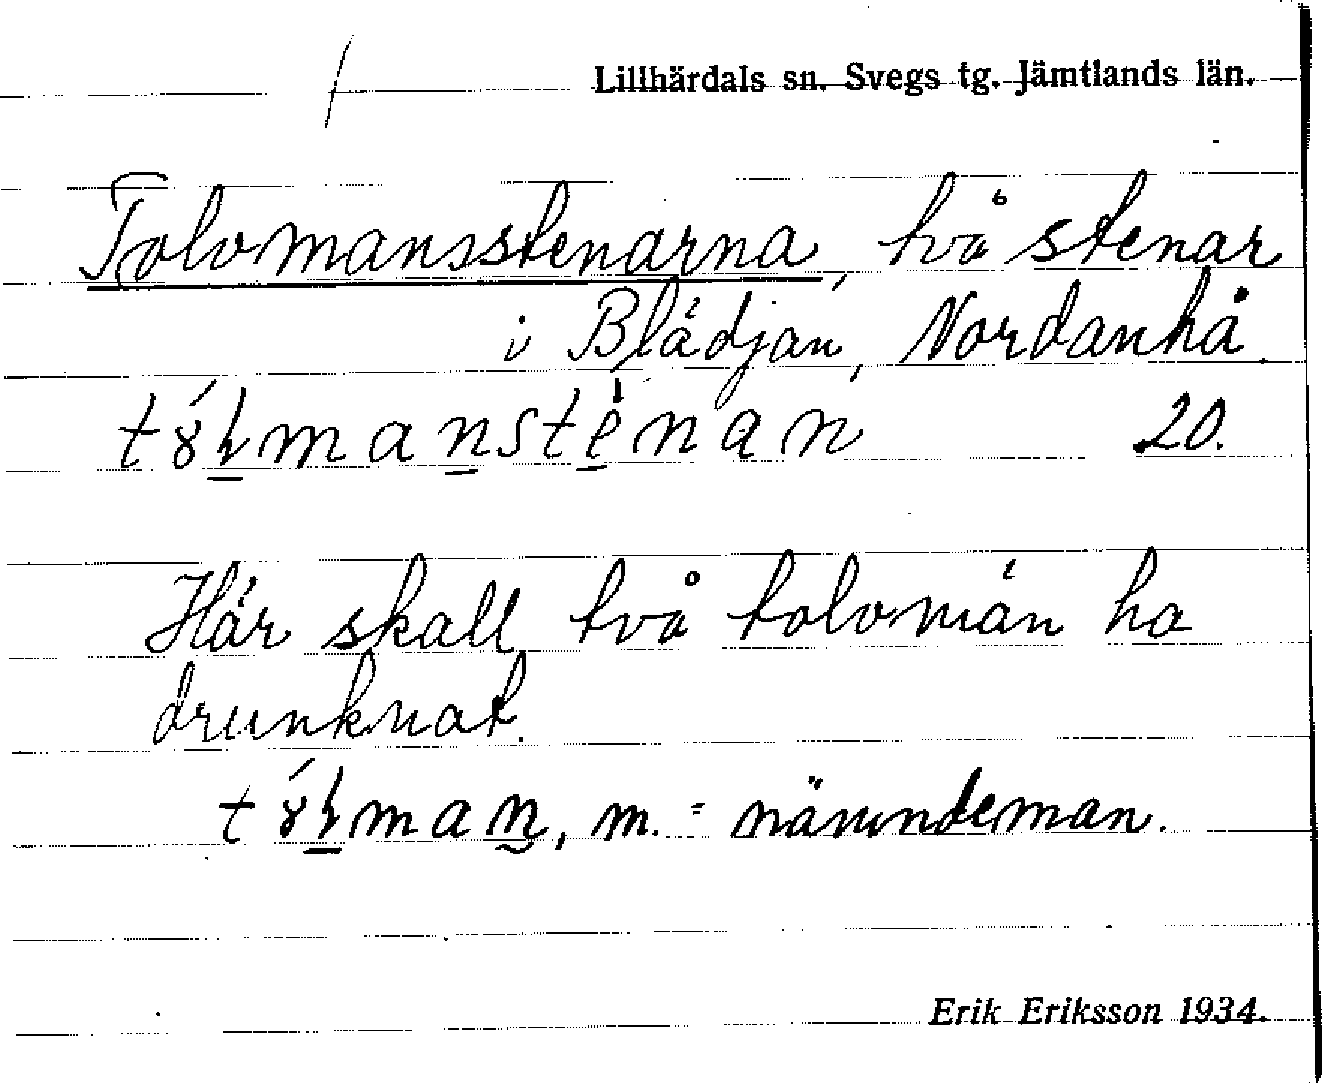 Lillhärdals sn. Svegs tg. Jämtlands län.
Tolvmansstenarna, två stenar
i Blädjan, Nordanhå.
20.
Här skall två tolvmän ha
drunknat.
m. = nämndeman.
Erik Eriksson 1934.